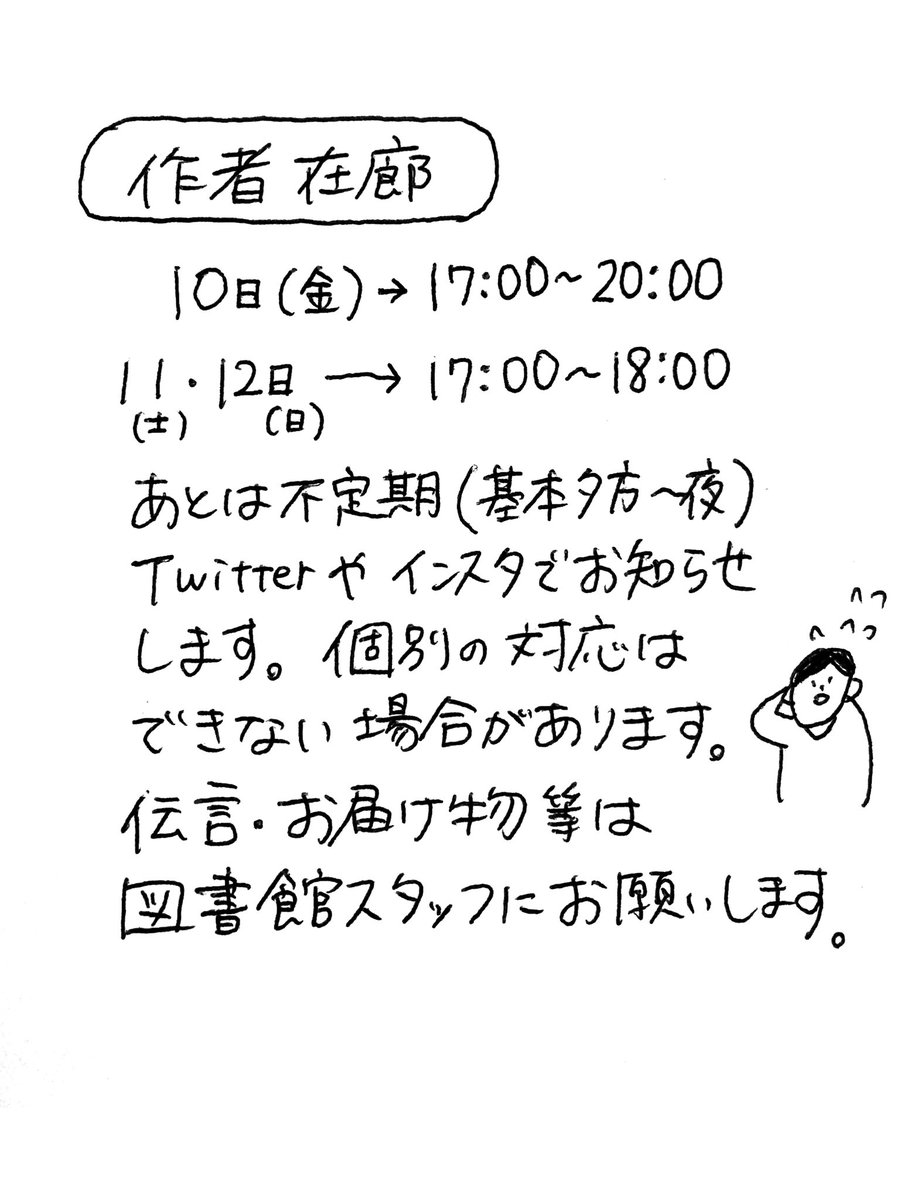 作者在廊
10日(金)→17:00〜20:00
11・12日→17:00〜18:00
(土) (日)
あとは不定期(基本夕方〜夜)
Twitterやインスタでお知らせ
します。個別の対応は
できない場合があります。
伝言・お届け物等は
図書館スタッフにお願いします。
へっ
へへっ